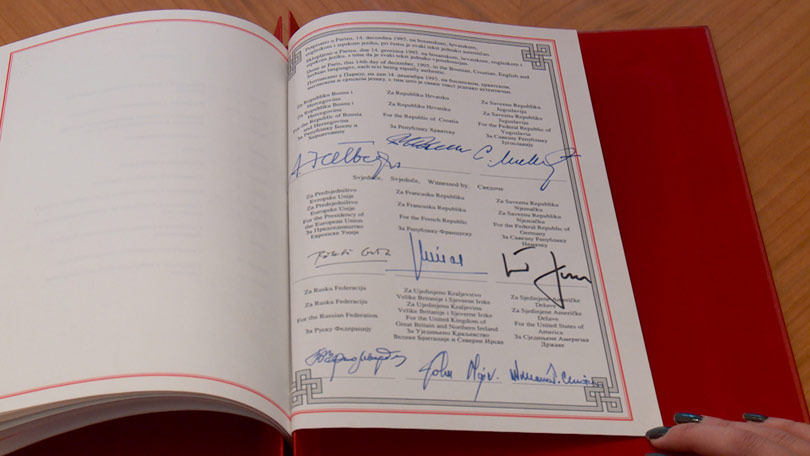 Potpisano u Parizu, 14. decembra 1995, na bosanskom, hrvatskom,
engleskom i srpskom jeziku, pri čemu je svaki tekst jednako autentičan.
Sklopljeno u Parizu, dne 14. prosinca 1995, na bosanskom, hrvatskom, engleskom i
srpskom jeziku, s time da je svaki tekst jednako vjerodostojan.
Done at Paris, this 14th day of December, 1995, in the Bosnian, Croatian, English and
Serbian languages, each text being equally authentic.
Потписано у Паризу, на дан 14. децембра 1995, на босанском, хрватском,
енглеском и српском језику, с тим што је сваки текст једнако аутентичан.
Za Republiku Bosnu i
Hercegovinu
Za Republiku Bosnu i
Hercegovinu
For the Republic of Bosnia
and Herzegovina
За Републику Босну и
Херцеговину
Za Republiku Hrvatsku
Za Republiku Hrvatsku
For the Republic of Croatia
За Републику Хрватску
Za Saveznu Republiku
Jugoslaviju
Za Saveznu Republiku
Jugoslaviju
For the Federal Republic of
Yugoslavia
За Савезну Републику
Југославију
Svjedoče, Svjedoče, Witnessed by, Сведоче
Za Predsjedništvo
Evropske Unije
Za Predsjedništvo
Europske Unije
For the Presidency of
the European Union
За Председништво
Европске Уније
Za Francusku Republiku
Za Francusku Republiku
For the French Republic
За Републику Француску
Za Saveznu Republiku
Njemačku
Za Saveznu Republiku
Njemačku
For the Federal Republic of
Germany
За Савезну Републику
Немачку
Za Ruska Federacija
Za Ruska Federacija
For the Russian Federation
За Руску Федерацију
Za Ujedinjeno Kraljevstvo
Velike Britanije i Sjeverne Irske
Za Ujedinjeno Kraljevstvo
Velike Britanije i Sjeverne Irske
For the United Kingdom of
Great Britain and Northern Ireland
За Уједињено Краљевство
Велике Британије и Северне Ирске
Za Sjedinjene Američke
Države
Za Sjedinjene Američke
Države
For the United States of
America
За Сједињене Америчке
Државе
John Major